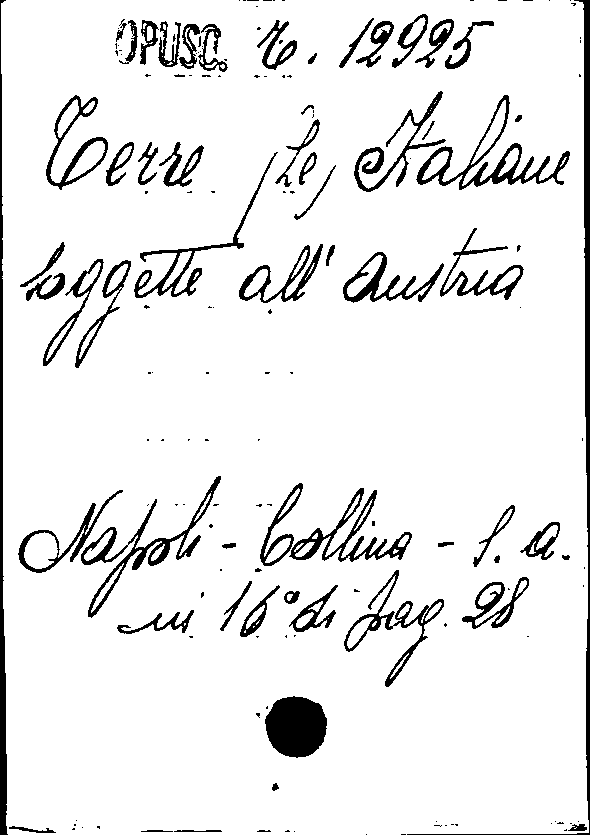 OPUSC. C. 12925
Terre (Le) Italiane
soggette all' Austria
Napoli - Collina - S. a.
in 16° di pag. 28